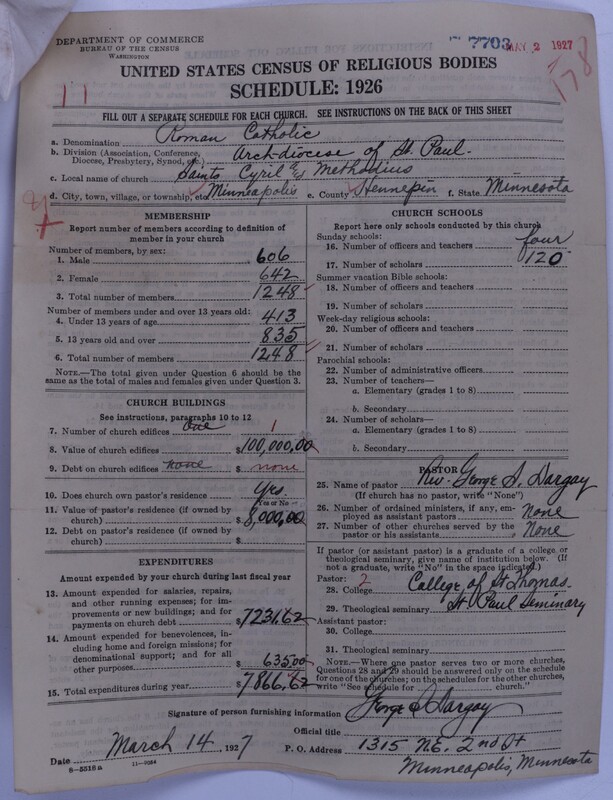 DEPARTMENT OF COMMERCE
BUREAU OF THE CENSUS
WASHINGTON
7703 MAY 2 1927
178
UNITED STATES CENSUS OF RELIGIOUS BODIES
SCHEDULE: 1926
11
FILL OUT A SEPARATE SCHEDULE FOR EACH CHURCH. SEE INSTRUCTIONS ON THE BACK OF THIS SHEET
a. Denomination Roman Catholic
b. Division (Association, Conference, Diocese, Presbytery, Synod, etc.) Arch-diocese of St. Paul.
c. Local name of church Saints Cyril & Methodius
d. City, town, village, or township, etc. Minneapolis e. County Hennepin f. State Minnesota
MEMBERSHIP
Report number of members according to definition of
member in your church
Number of members, by sex:
1. Male 606
2. Female 642
3. Total number of members 1248
Number of members under and over 13 years old:
4. Under 13 years of age 413
5. 13 years old and over 835
6. Total number of members 1248
NOTE.—The total given under Question 6 should be
same as the total of males and females given under Question 3.
CHURCH BUILDINGS
See instructions, paragraphs 10 to 12
7. Number of church edifices One 1
8. Value of church edifices $100,000,00
9. Debt on church edifices none $ none
10. Does church own pastor's residence Yes
(Yes or No)
11. Value of pastor's residence (if owned by
church) $8,000,00
12. Debt on pastor's residence (if owned by
church) $
EXPENDITURES
Amount expended by your church during last fiscal year
13. Amount expended for salaries, repairs,
and other running expenses; for im-
provements or new buildings; and for
payments on church debt $7231,62
14. Amount expended for benevolences,
including home and foreign missions; for
denominational support; and for all
other purposes $635,00
15. Total expenditures during year $7866,62
CHURCH SCHOOLS
Report here only schools conducted by this church
Sunday schools:
16. Number of officers and teachers four
17. Number of scholars 120
Summer vacation Bible schools:
18. Number of officers and teachers
19. Number of scholars
Week-day religious schools:
20. Number of officers and teachers
21. Number of scholars
Parochial schools:
22. Number of administrative officers
23. Number of teachers—
a. Elementary (grades 1 to 8)
b. Secondary
24. Number of scholars—
a. Elementary (grades 1 to 8)
b. Secondary
PASTOR
25. Name of pastor Rev. George S. Dargay
(If church has no pastor, write "None")
26. Number of ordained ministers, if any, em-
ployed as assistant pastors None
27. Number of other churches served by the
pastor or his assistants None
If pastor (or assistant pastor) is a graduate of a college or
theological seminary, give name of institution below. (If
not a graduate, write "No" in the space indicated.)
Pastor: 2
28. College College of St Thomas.
29. Theological seminary St. Paul Seminary
Assistant pastor:
30. College
31. Theological seminary
NOTE.—Where one pastor serves two or more churches,
Questions 28 and 29 should be answered only on the schedule
for one of the churches; on the schedules for the other churches,
write "See schedule for church."
Signature of person furnishing information George S Dargay
Official title
Date March 14, 1927 P. O. Address 1315 N.E. 2nd St
Minneapolis, Minnesota
8—5516 a 11—9064